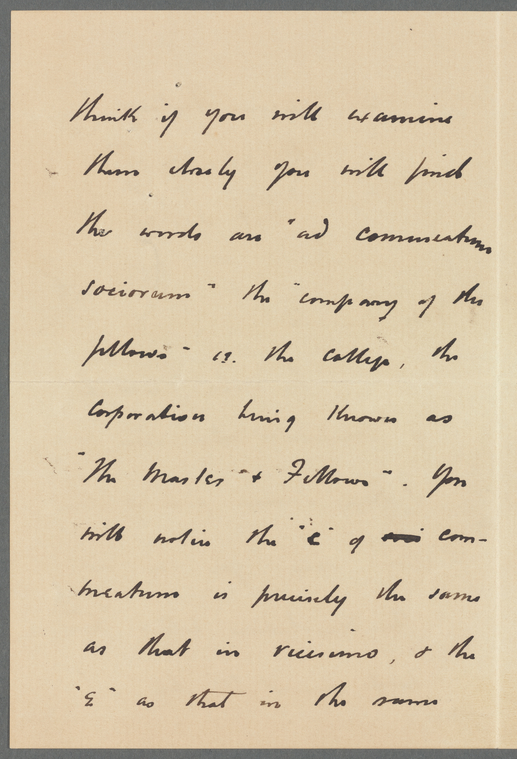 think if you will examine
them closely you will find
the words are "ad commeatum
sociorum" the "company of the
fellows" i.e. the college, the
Corporation being known as
"The Master" & Fellows". You
will notice the "c" of com-
meatum is precisely the same
as that in vicesimo, & the
"E" as that in the same